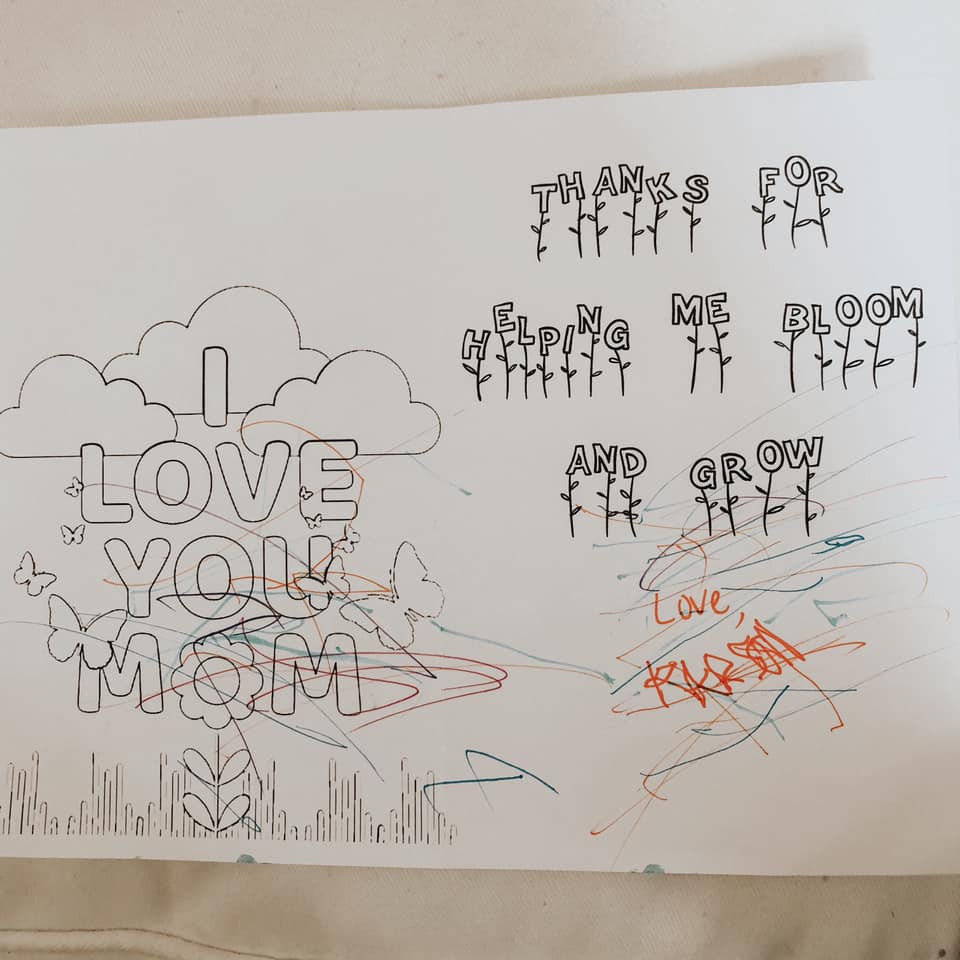 I
LOVE
YOU
MOM
THANKS FOR
HELPING ME BLOOM
AND GROW
Love,